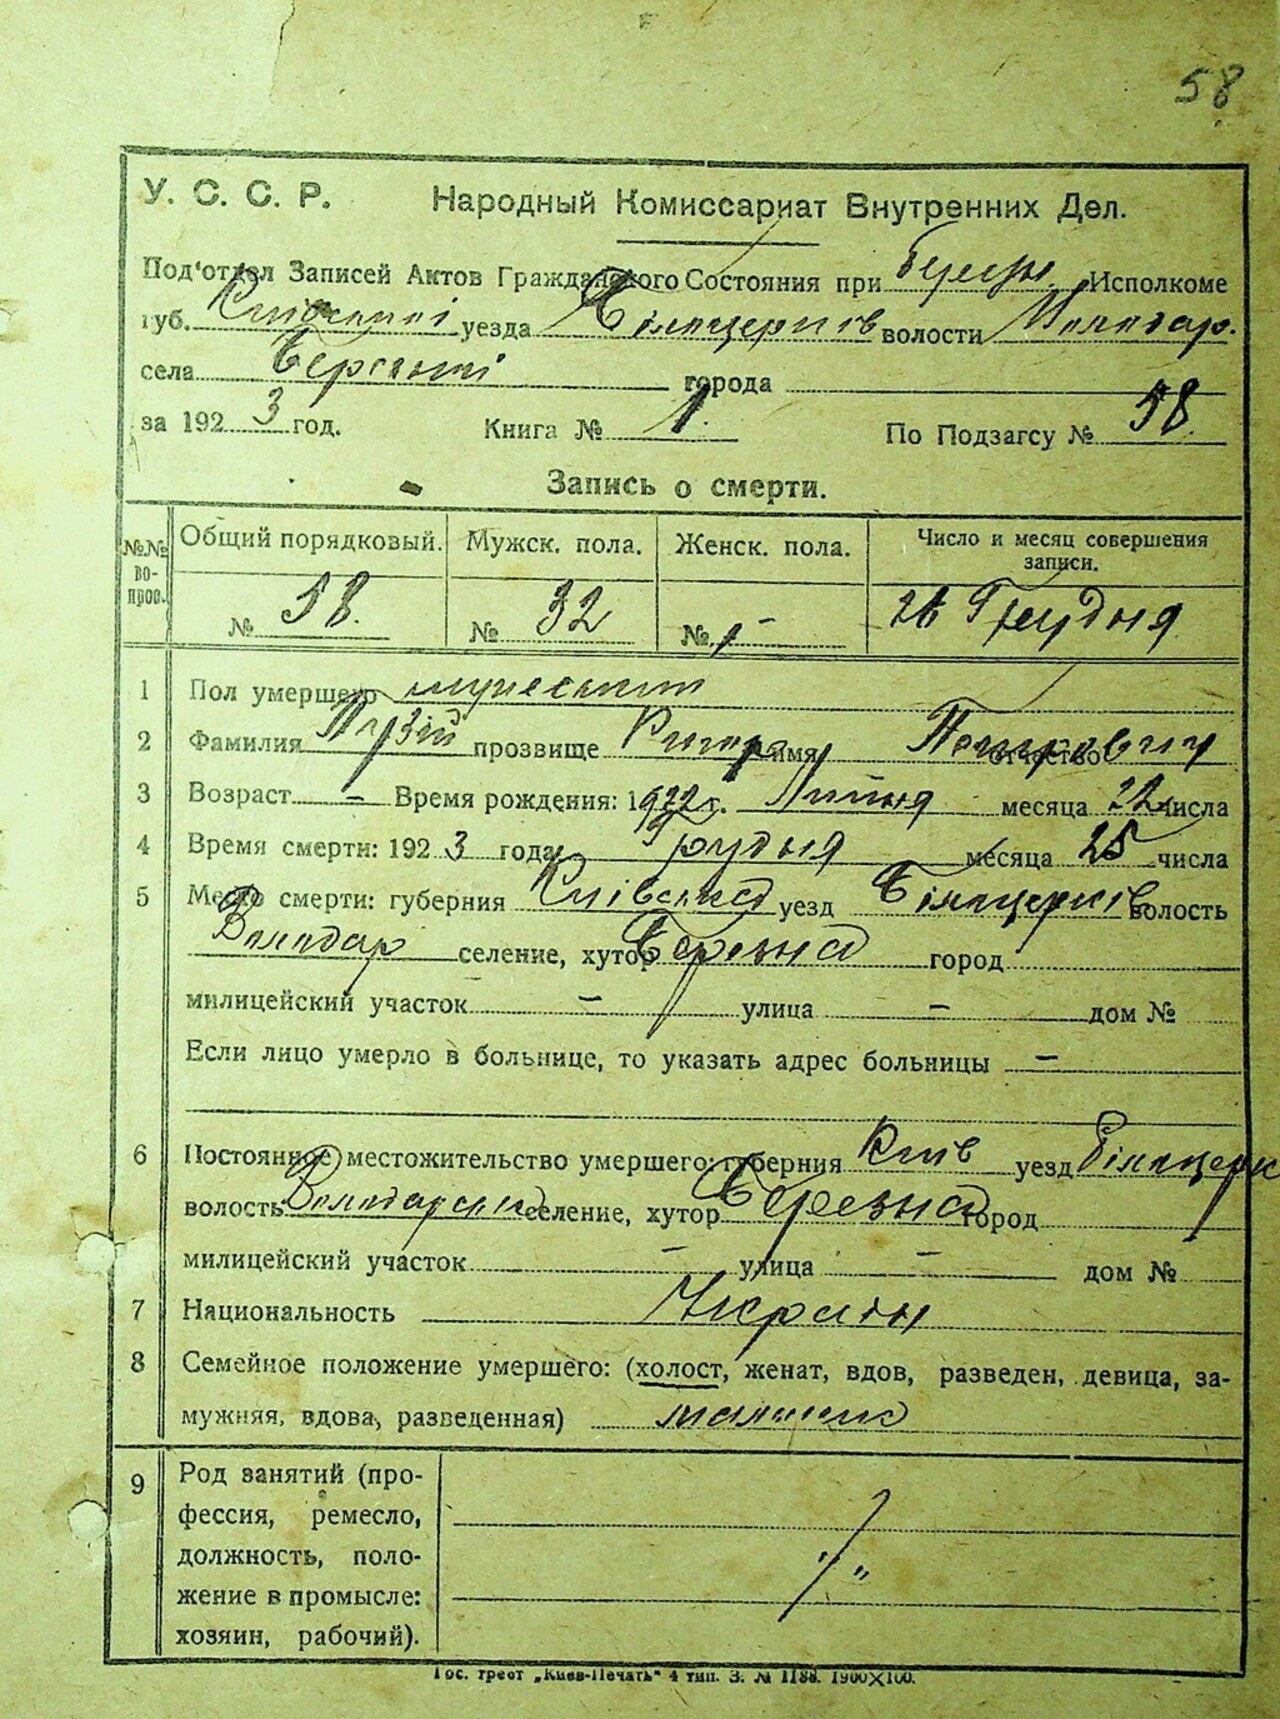 58
У. С. С. Р. Народный Комиссариат Внутренних Дел.
Под'отдел Записей Актов Гражданского Состояния при Исполкоме
губ. Київської уезда Білацерків волости Володар.
села города
за 1923 год. Книга № 1. По Подзагсу № 58.
Запись о смерти.
№№ вопрос. Общий порядковый. Мужск. пола. Женск. пола. Число и месяц совершения записи.
№ 58. № 32 № - 26 Грудня
1 Пол умершего
2 Фамилия прозвище имя Петрович отчество
3 Возраст — Время рождения: 1922 г. Липня месяца 22 числа
4 Время смерти: 1923 года Грудня месяца 25 числа
5 Место смерти: губерния Київська уезд Білацерків волость
Володар селение, хутор Березна город
милицейский участок — улица — дом №
Если лицо умерло в больнице, то указать адрес больницы —
6 Постоянное местожительство умершего: губерния Київ уезд Білацерк
волость Володарська селение, хутор Березна город
милицейский участок — улица — дом №
7 Национальность
8 Семейное положение умершего: (холост, женат, вдов, разведен, девица, за-
мужняя, вдова, разведенная)
9 Род занятий (про-
фессия, ремесло,
должность, поло-
жение в промысле:
хозяин, рабочий).
Гос. трест „Киев-Печать“ 4 тип. З. № 1188. 1900×100.